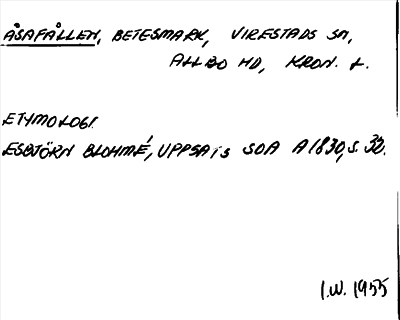 ÅSAFÅLLEN, BETESMARK, VIRESTADS SN,
ALLBO HD, KRON. L.
ETYMOLOGI.
ESBJÖRN BLOHMÉ, UPPSATS SOA A1830, S. 32.
I.W. 1955